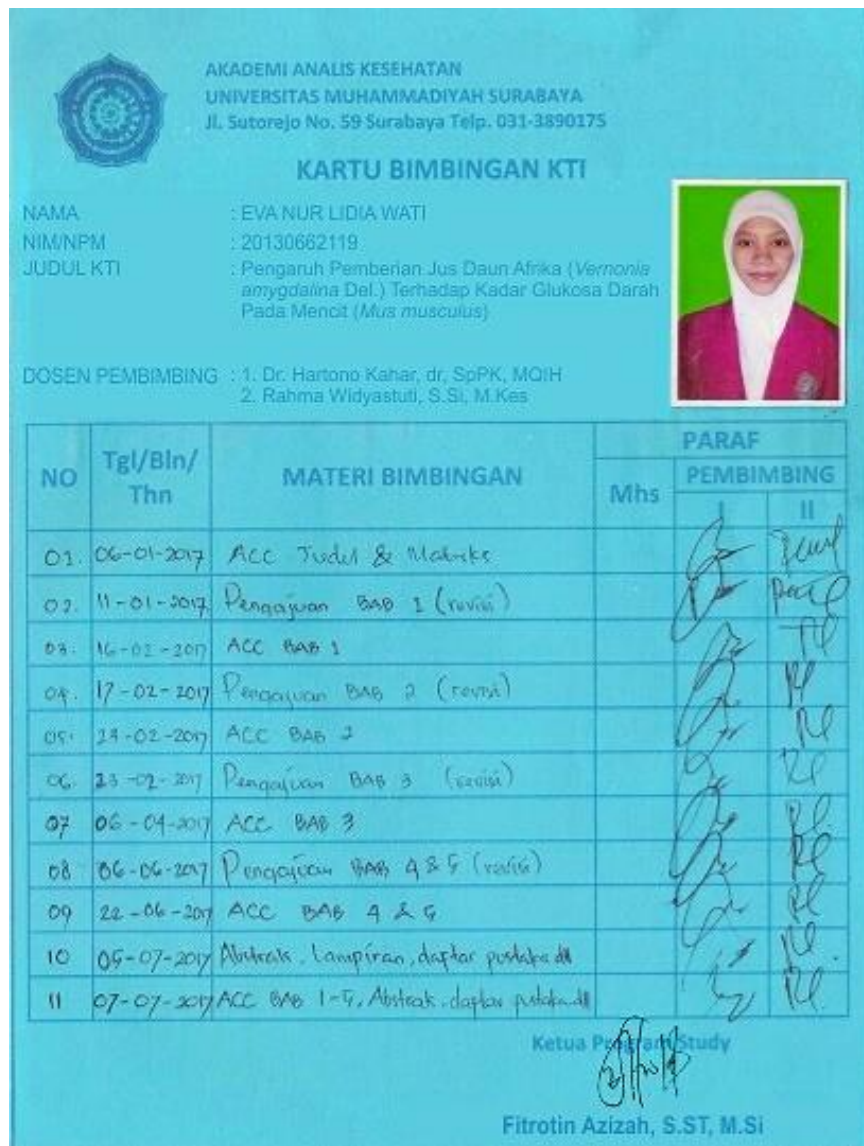 AKADEMI ANALIS KESEHATAN
UNIVERSITAS MUHAMMADIYAH SURABAYA
Jl. Sutorejo No. 59 Surabaya Telp. 031-3890175
KARTU BIMBINGAN KTI
NAMA : EVA NUR LIDIA WATI
NIM/NPM : 20130662119
JUDUL KTI : Pengaruh Pemberian Jus Daun Afrika (Vernonia
amygdalina Del.) Terhadap Kadar Glukosa Darah
Pada Mencit (Mus musculus)
DOSEN PEMBIMBING : 1. Dr. Hartono Kahar, dr, SpPK, MQIH
2. Rahma Widyastuti, S.Si, M.Kes
NO Tgl/Bln/Thn MATERI BIMBINGAN PARAF
Mhs PEMBIMBING
I II
01. 06-01-2017 ACC Judul &
02. 11-01-2017 Pengajuan BAB 1 (revisi)
03. 16-02-2017 ACC BAB 1
04. 17-02-2017 Pengajuan BAB 2 (revisi)
05. -02-2017 ACC BAB 2
06. 23-02-2017 Pengajuan BAB 3 (revisi)
07 06-04-2017 ACC BAB 3
08 06-06-2017 Pengajuan BAB 4 & 5 (revisi)
09 22-06-2017 ACC BAB 4 & 5
10 05-07-2017 Abstrak, Lampiran, daftar pustaka dll
11 07-07-2017 ACC BAB 1-5, Abstrak, daftar pustaka dll
Ketua Program Study
Fitrotin Azizah, S.ST, M.Si